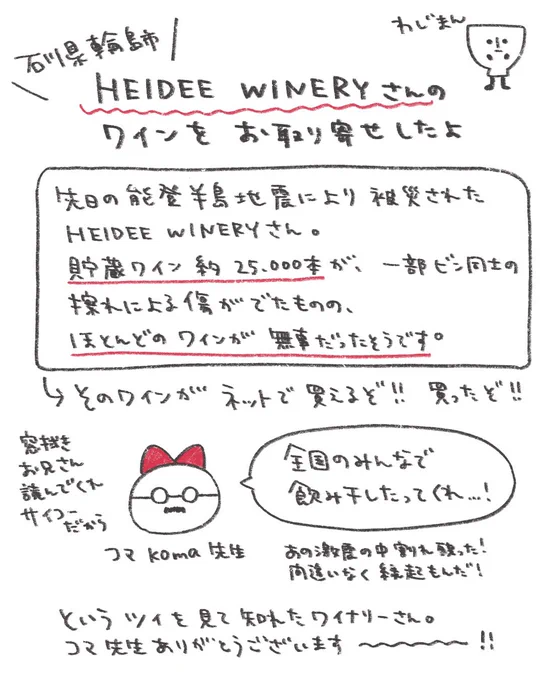 石川県輪島市
わじまん
HEIDEE WINERYさんの
ワインを お取り寄せしたよ
先日の能登半島地震により 被災された
HEIDEE WINERYさん。
貯蔵ワイン 約 25.000本が、一部ビン同士の
擦れによる傷がでたものの、
ほとんどの ワインが 無事だったそうです。
そのワインが ネットで 買えるぞ!! 買ったぞ!!
窓拭き
お兄さん
読んでくれ
サイコー
だから
全国のみんなで
飲み干したってくれ…!
コマ koma 先生
あの激震の中 割れ残った!
間違いなく 縁起もんだ!
という ツイを 見て 知れた ワイナリーさん。
コマ 先生 ありがとうございます 〜〜〜!!